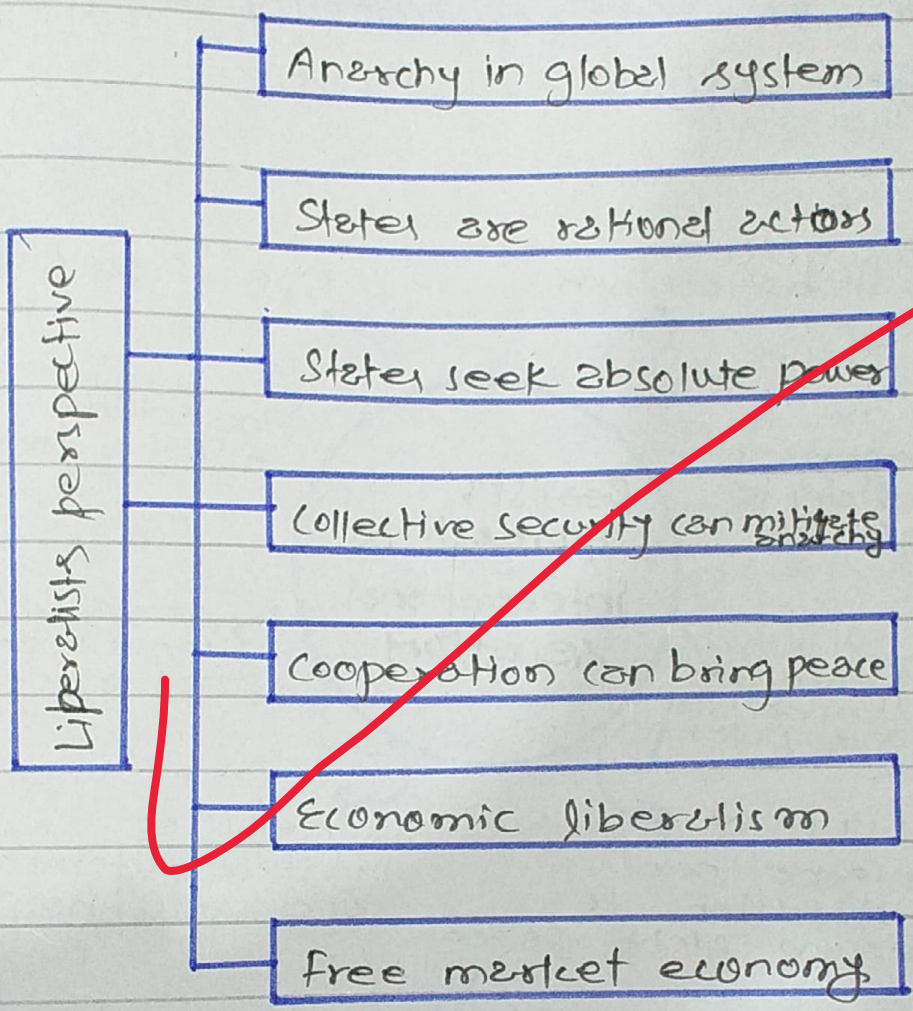 Liberalists perspective
Anarchy in global system
States are rational actors
States seek absolute power
Collective security can mitigate
anarchy
Cooperation can bring peace
Economic liberalism
Free market economy